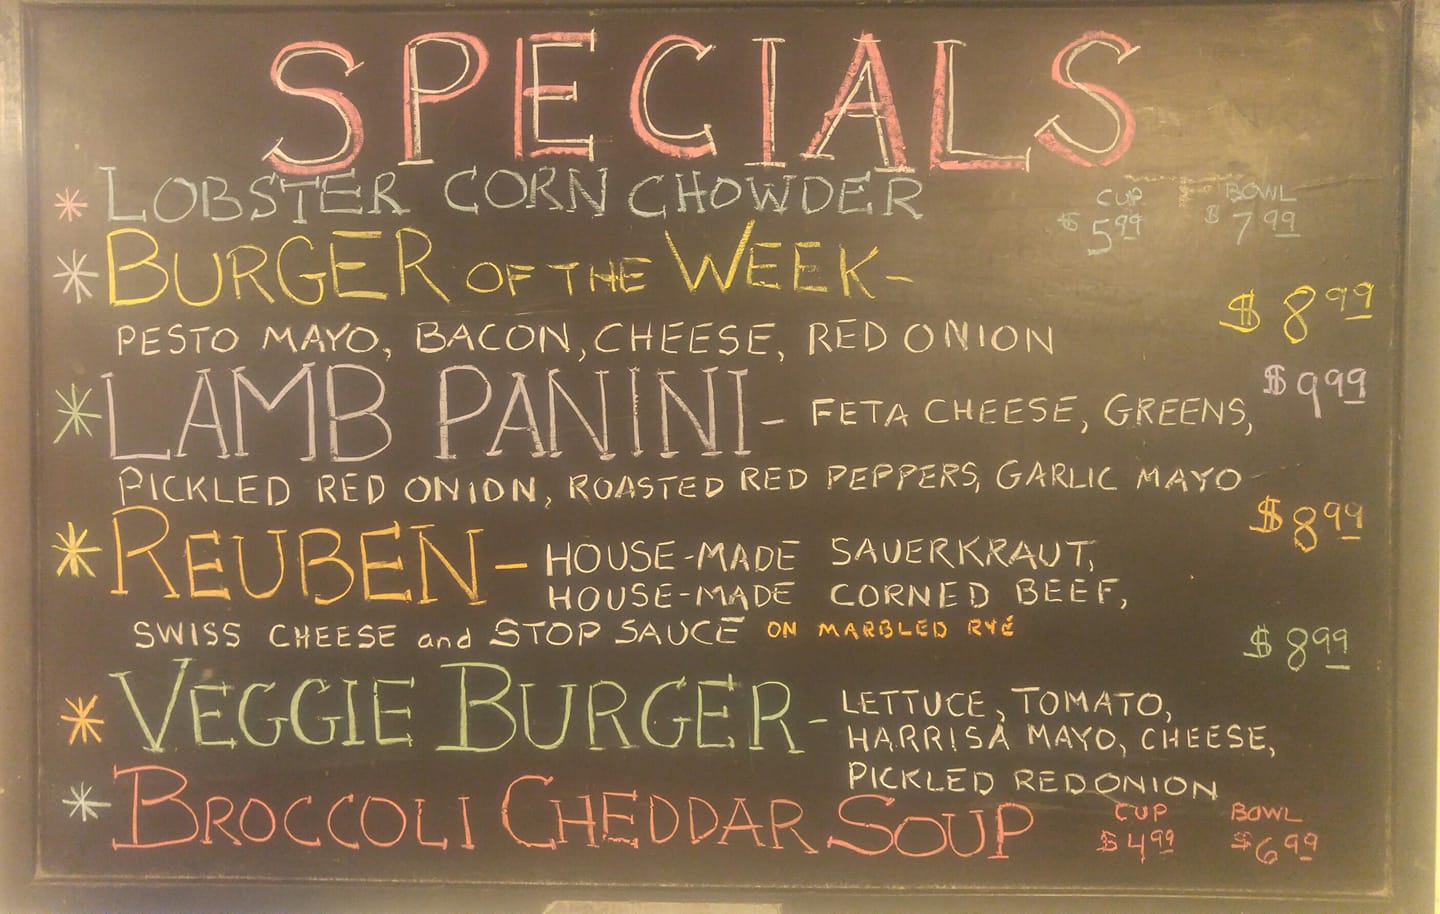 SPECIALS
* LOBSTER CORN CHOWDER CUP $5.99 BOWL $7.99
* BURGER OF THE WEEK- $8.99
PESTO MAYO, BACON, CHEESE, RED ONION
* LAMB PANINI- FETA CHEESE, GREENS, $9.99
PICKLED RED ONION, ROASTED RED PEPPERS, GARLIC MAYO
* REUBEN- HOUSE-MADE SAUERKRAUT, $8.99
HOUSE-MADE CORNED BEEF,
SWISS CHEESE and STOP SAUCE ON MARBLED RYE
* VEGGIE BURGER- LETTUCE, TOMATO, $8.99
HARRISA MAYO, CHEESE,
PICKLED RED ONION
* BROCCOLI CHEDDAR SOUP CUP $4.99 BOWL $6.99